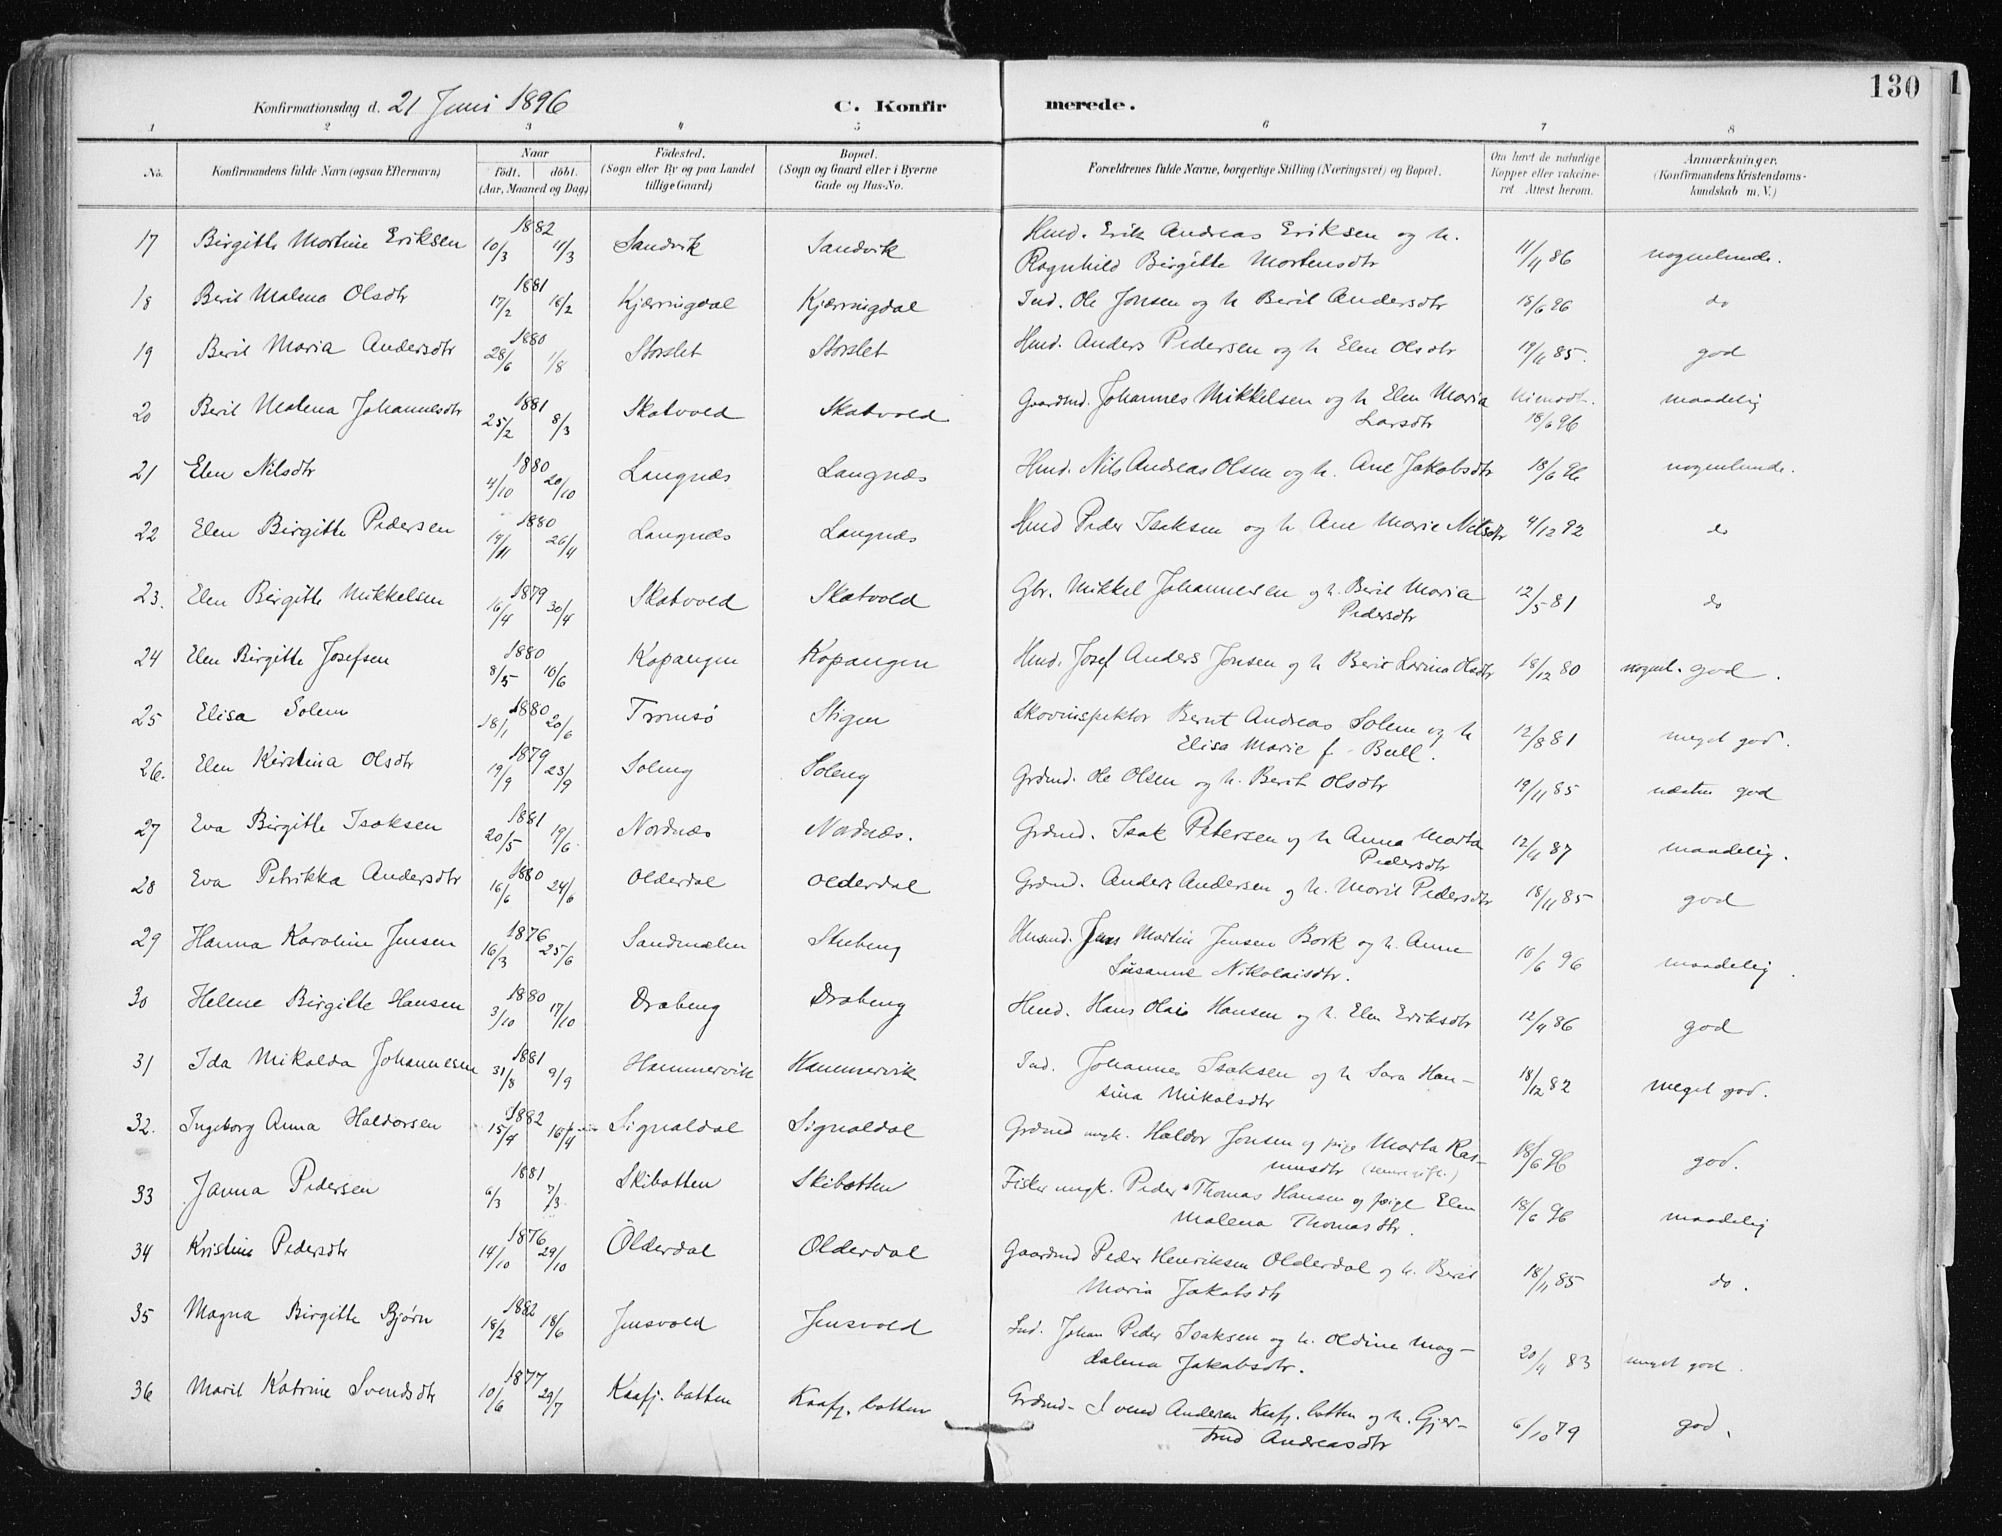 130
Konfirmationsdag d. 21 Juni 1896 C. Konfirmerede.
1 2 3 4 5 6 7 8
No. Konfirmandens fulde Navn (ogsaa Efternavn) Naar født. døbt. (Aar, Maaned og Dag) Fødested. (Sogn eller By og paa Landet tillige Gaard) Bopæl. (Sogn og Gaard eller i Byerne Gade og Hus-No. Forældrenes fulde Navne, borgerlige Stilling (Næringsvei) og Bopæl. Om havt de naturlige Kopper eller vakcineret Attest herom. Anmærkninger, (Konfirmandens Kristendomskundskab m. V.)
17 Birgitte Martine Eriksen 1882 10/3 11/3 Sandvik Sandvik Hmd. Erik Andreas Eriksen og h. 11/11 86 nogenlunde.
Ragnhild Birgitte Mortensdtr
18 Berit Malena Olsdtr 1881 17/2 18/2 Kjærringdal Kjærringdal Ind. Ole Jonsen og h Berit Andersdtr 18/6 96 do
19 Berit Maria Andersdtr 1880 28/6 1/8 Storslet Storslet Hmd. Anders Pedersen og h Elen Olsdtr 19/11 85. god
20 Berit Malena Johannesdtr 1881 25/2 8/3 Skatvold Skatvold Gaardmd. Johannes Mikkelsen og h Elen Maria maadelig
Larsdtr 18/6 96
21 Elen Nilsdtr 1880 4/10 20/10 Langnæs Langnæs Hmd. Nils Andreas Olsen og h. Ane Jakobsdtr 18/6 96 nogenlunde.
22 Elen Birgitte Pedersen 1880 19/11 26/11 Langnæs Langnæs Hmd Peder Isaksen og h Ane Marie Nilsdtr 4/12 92 do
23. Elen Birgitte Mikkelsen 1879 16/4 30/4 Skatvold Skatvold Gbr. Mikkel Johannesen og h. Berit Maria 12/5 81 do
Pedersdtr
24 Elen Birgitte Josefsen 1880 8/5 10/6 Kopangen Kopangen Hmd. Josef Anders Jonsen og h Berit Larina Olsdtr 18/12 80 nogenl. god.
25 Elisa Solem 1880 18/1 20/6 Tromsø Stigen Skovinspektør Bernt Andreas Solem og h 12/8 81 meget god.
Elisa Marie f. Bull.
26. Elen Kirstina Olsdtr 1879 19/9 23/9 Soleng Soleng Grdmd. Ole Olsen og h. Berit Olsdtr 19/11 85 næsten god
27 Eva Birgitte Isaksen 1881 20/5 19/6 Nordnæs Nordnæs. Grdmd. Isak Petersen og h Anna Marta 12/11 87 maadelig.
Pedersdtr
28 Eva Petrikka Andersdtr 1880 16/6 24/6 Olderdal Olderdal Grdmd. Anders Andersen og h. Marit Pedersdtr 18/11 85 god
29 Hanna Karoline Jensen 1876 16/3 25/6 Sandmælen Stubeng Husmd. Jens Martin Jensen Bork og h. Anne 10/6 96 maadelig.
Susanne Nikolaisdtr.
30 Helene Birgitte Hansen 1880 3/10 17/10 Drabeng Drabeng Hmd. Hans Olai Hansen og h. Elen Eriksdtr 12/11 86 god
31 Ida Mikalda Johannesen 1881 31/8 9/9 Hammervik Hammervik Ind. Johannes Isaksen og h Sara Han-
sina Mikalsdtr 18/12 82 meget god.
32. Ingeborg Anna Haldorsen 1882 15/4 16/4 Signaldal Signaldal Grdmd ungk. Haldor Jonsen og pige Marta Ras-
musdtr 18/6 96 god.
33 Janna Pedersen 1881 6/3 7/3 Skibotten Skibotten Fisker ungk. Peder Thomas Hansen og pige Elen
Malena Thomasdtr. 18/6 96 maadelig
34 Kristine Pedersdtr 1876 14/10 29/10 Olderdal Olderdal Gaardmd Peder Henriksen Olderdal og h. Berit
Maria Jakobsdtr 18/11 85 do.
35 Magna Birgitte Bjørn 1882 18/2 18/6 Jensvold Jensvold Ind. Johan Peder Isaksen og h. Oldine Mag-
dalena Jakobsdtr. 20/11 83 meget god.
36 Marit Katrine Svendsdtr 1877 10/6 29/7 Kaafj. botten Kaafj. botten Grdmd- Svend Andersen Kaafj. botten og h. Gjer-
trud Andreasdtr 6/10 79 god.